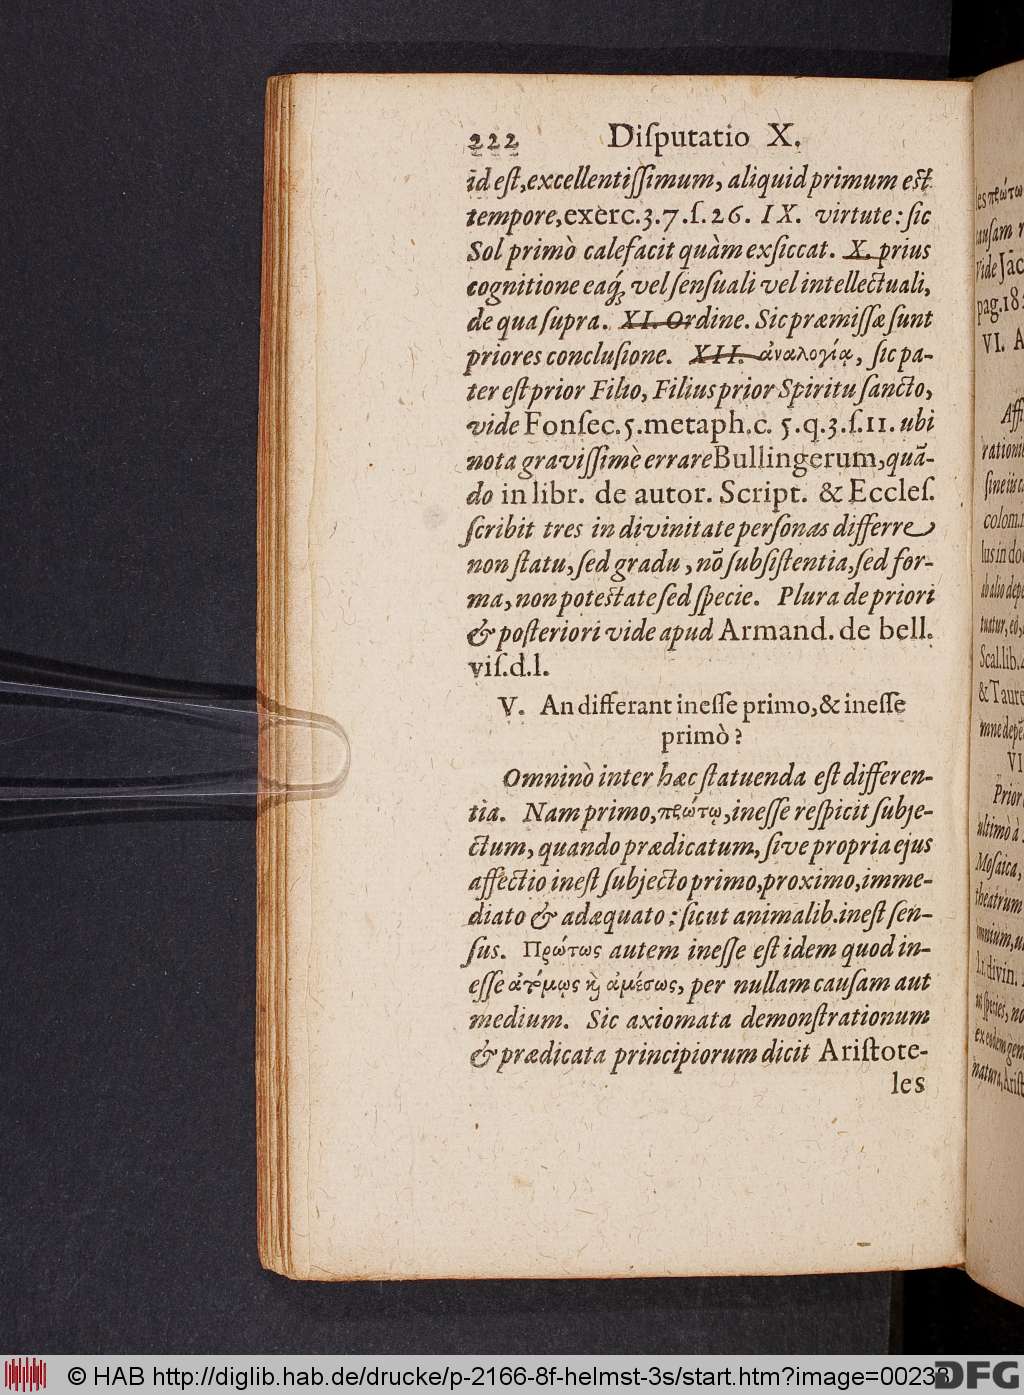 222 Diſputatio X.
id eſt, excellentiſſimum, aliquid primum eſt
tempore, exerc. 3. 7. ſ. 26. IX. virtute: ſic
Sol primò calefacit quàm exſiccat. X. prius
cognitione eaq́; vel ſenſuali vel intellectuali,
de qua ſupra. XI. Ordine. Sic præmiſſæ ſunt
priores concluſione. XII. ἀναλογίᾳ, ſic pa-
ter eſt prior Filio, Filius prior Spiritu ſancto,
vide Fonſec. 5. metaph. c. 5. q. 3. ſ. 11. ubi
nota graviſſimè errare Bullingerum, quã-
do in libr. de autor. Script. & Eccleſ.
ſcribit tres in divinitate perſonas differre
non ſtatu, ſed gradu, nõ ſubſiſtentia, ſed for-
ma, non poteſtate ſed ſpecie. Plura de priori
& poſteriori vide apud Armand. de bell.
viſ. d. l.
V. An differant ineſſe primo, & ineſſe
primò?
Omninò inter hæc ſtatuenda eſt differen-
tia. Nam primo, πρώτῳ, ineſſe reſpicit ſubje-
ctum, quando prædicatum, ſive propria ejus
affectio ineſt ſubjecto primo, proximo, imme-
diato & adæquato: ſicut animalib. ineſt ſen-
ſus. Πρώτως autem ineſſe eſt idem quod in-
eſſe ἀτόμως ϗ ἀμέσως, per nullam cauſam aut
medium. Sic axiomata demonſtrationum
& prædicata principiorum dicit Ariſtote-
les
les πρώτω
cauſam
Vide Jac
pag. 18
VI. A
Aff
ratione
ſine iis
colom.
lus in
ab alio
tuatur, eò,
Scal. lib.
& Taure
mne
VI
Prior
ultimò à
Moſaica,
theatrum
L. divin.
ex eodem gen
natura, Ariſt
© HAB http://diglib.hab.de/drucke/p-2166-8f-helmst-3s/start.htm?image=00238
DFG